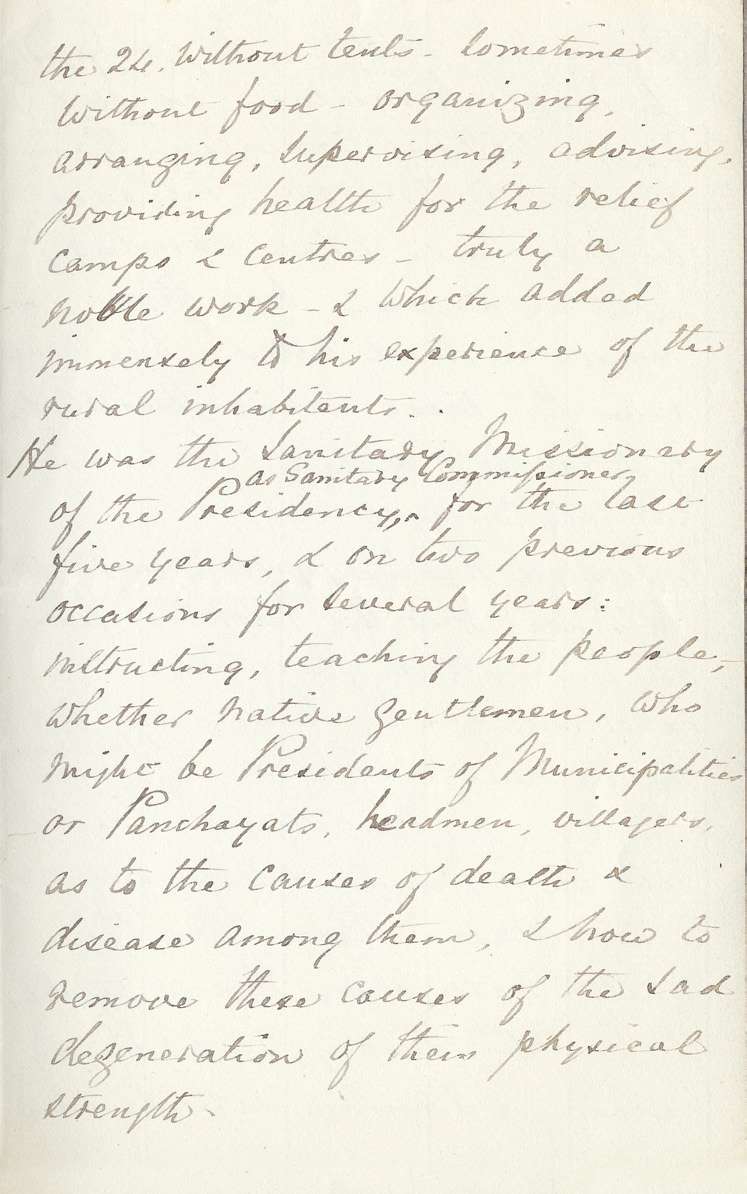 the 24. Without tents - Sometimes
without food - organizing,
arranging, supervising, advising,
providing health for the relief
camps & centres - truly a
noble work - & which added
immensely to his experience of the
rural inhabitents..
He was the Sanitary Missionary
as Sanitary Commissioner,
of the Presidency, for the last
five years, & on two previous
occasions for several years:
instructing, teaching the people,
whether native gentlemen, who
might be Presidents of Municipalities
or Panchayats, headmen, villagers,
as to the causes of death &
disease among them, & how to
remove these causes of the sad
degeneration of their physical
strength -